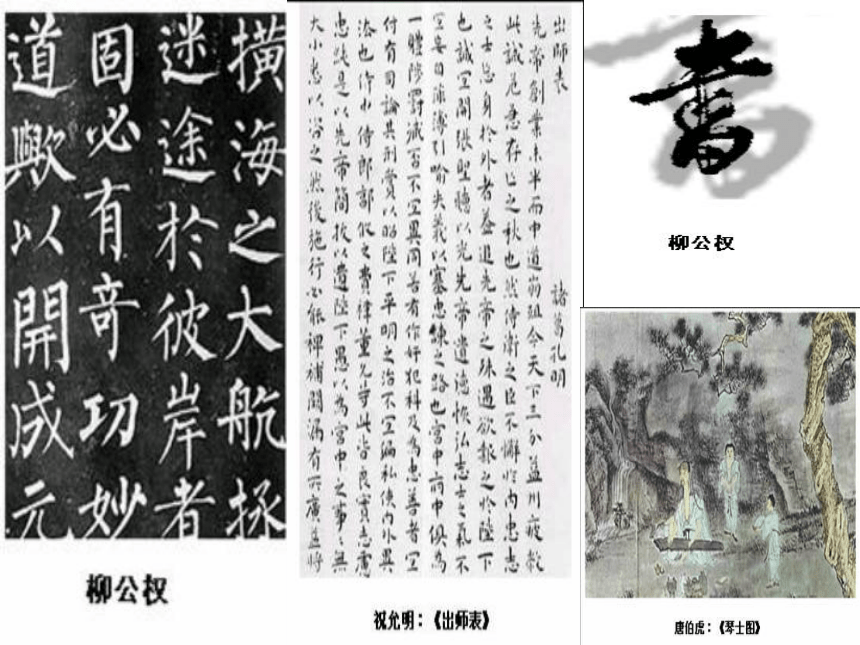 橫海之大航拯
迷途於彼岸者
固必有奇功妙
道歟以開成元
柳公权
出師表
諸葛孔明
先帝創業未半而中道崩殂今天下三分益州疲敝
此誠危急存亡之秋也然侍衛之臣不懈於內忠志
之士忘身於外者蓋追先帝之殊遇欲報之於陛下
也誠宜開張聖聽以光先帝遺德恢弘志士之氣不
宜妄自菲薄引喻失義以塞忠諫之路也宮中府中俱為
一體陟罰臧否不宜異同若有作奸犯科及為忠善者宜
付有司論其刑賞以昭陛下平明之治不宜偏私使內外異
法也侍中侍郎郭攸之費禕董允等此皆良實志慮
忠純是以先帝簡拔以遺陛下愚以為宮中之事事無
大小悉以咨之然後施行必能裨補闕漏有所廣益將
祝允明：《出师表》
書
柳公权
唐伯虎：《琴士图》